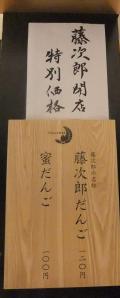 藤次郎開店
特別価格
藤次郎だんご 一二〇円
蜜だんご 一〇〇円